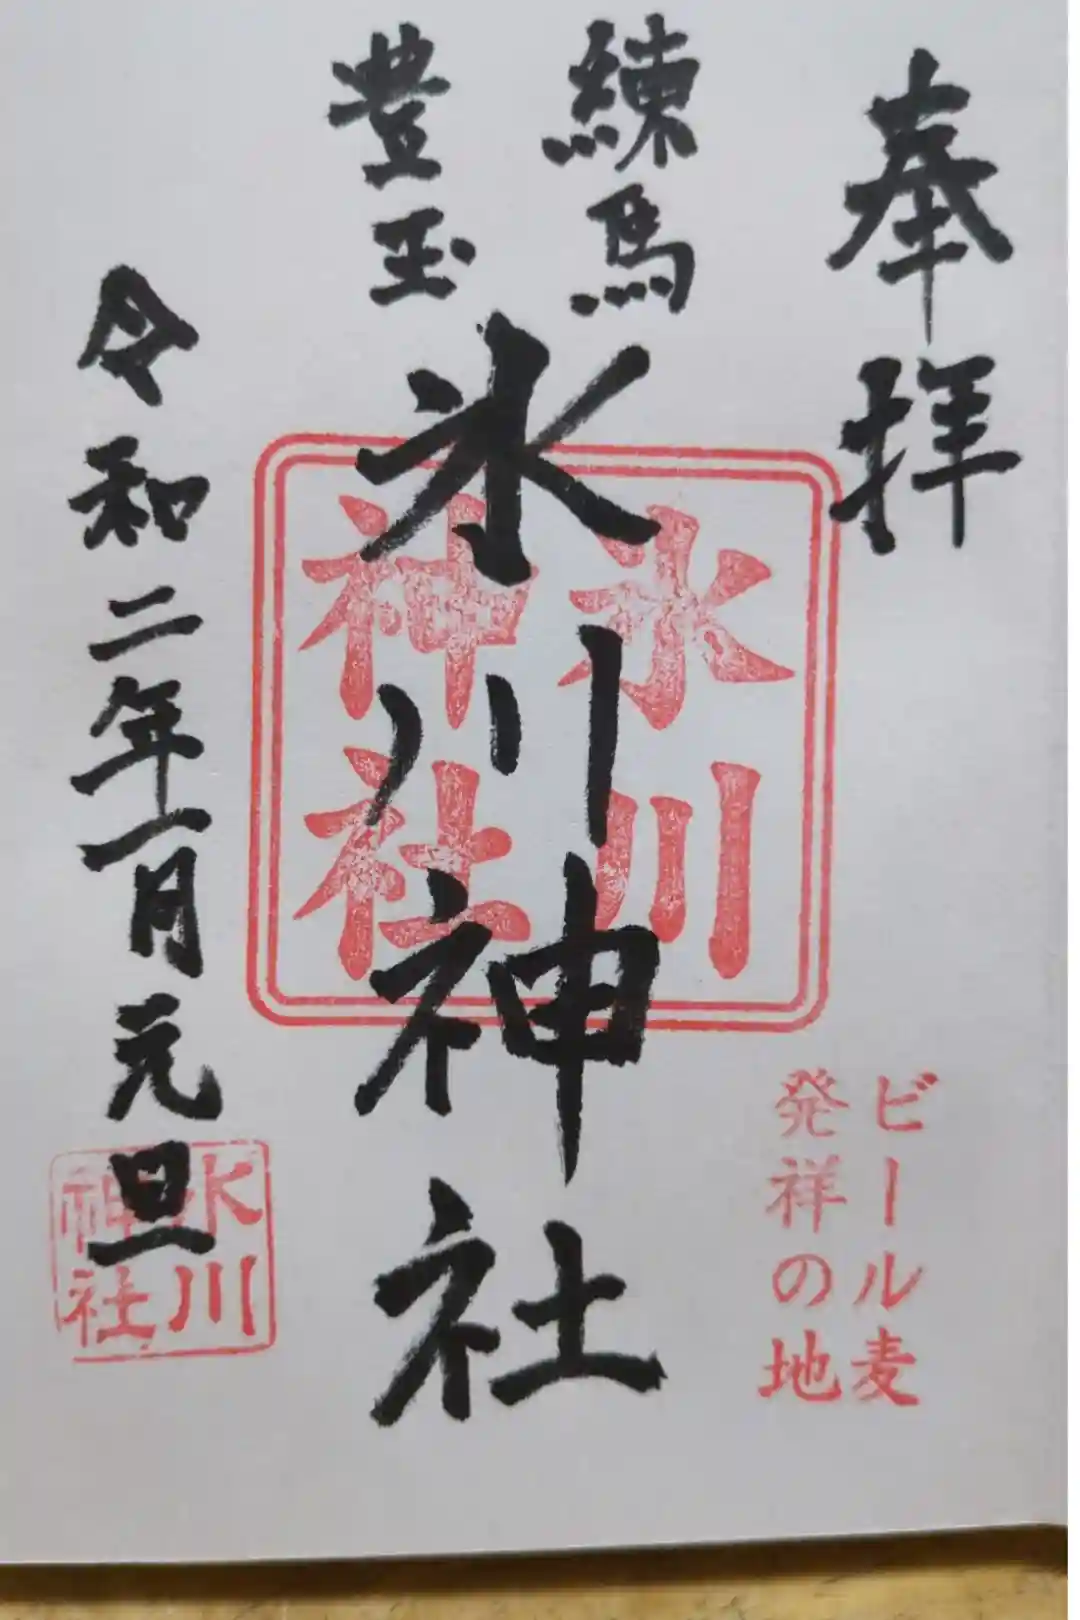 奉拝
練馬
豊玉
氷川神社
氷川
神社
ビール麦
発祥の地
令和二年一月元旦
氷川
神社